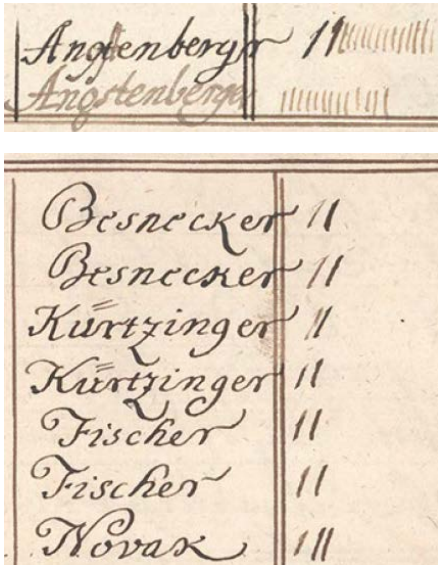 Angstenbergr II
Angstenberger
Besnecker II
Besnecker II
Kürtzinger II
Kürtzinger II
Fischer II
Fischer II
Novak III